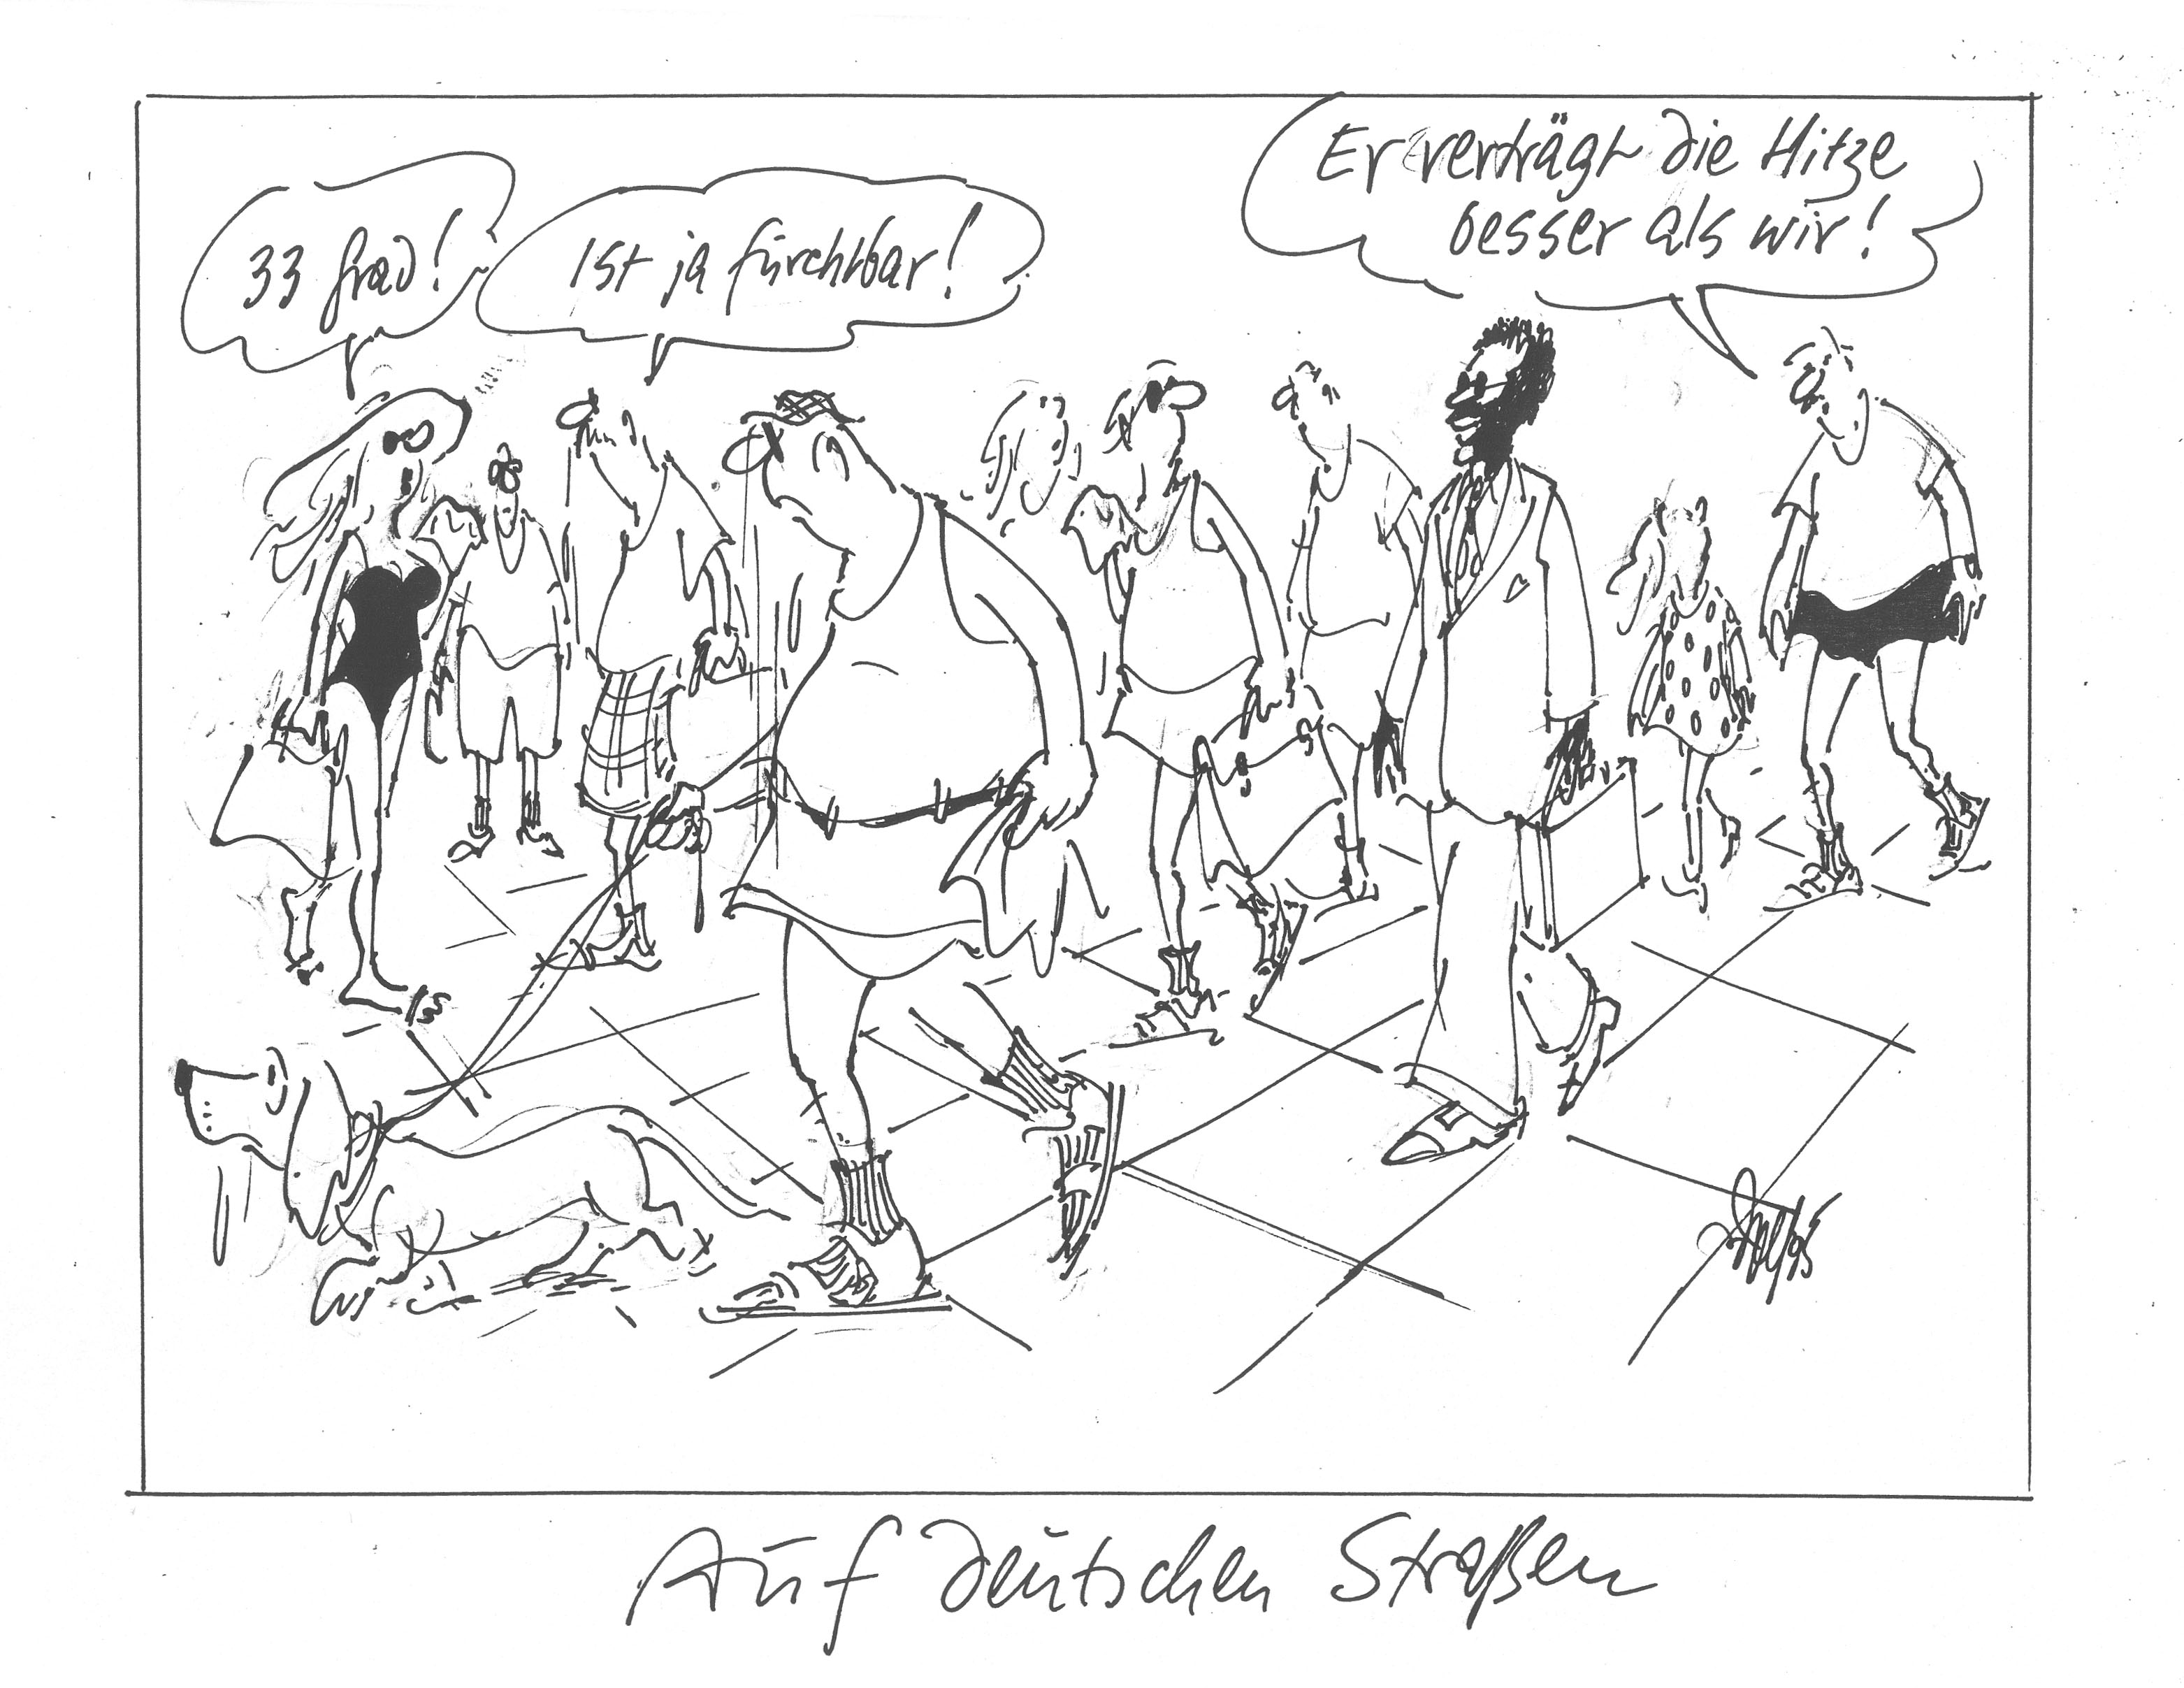 33 Grad!
Ist ja furchtbar!
Er verträgt die Hitze
besser als wir!
Auf deutschen Straßen